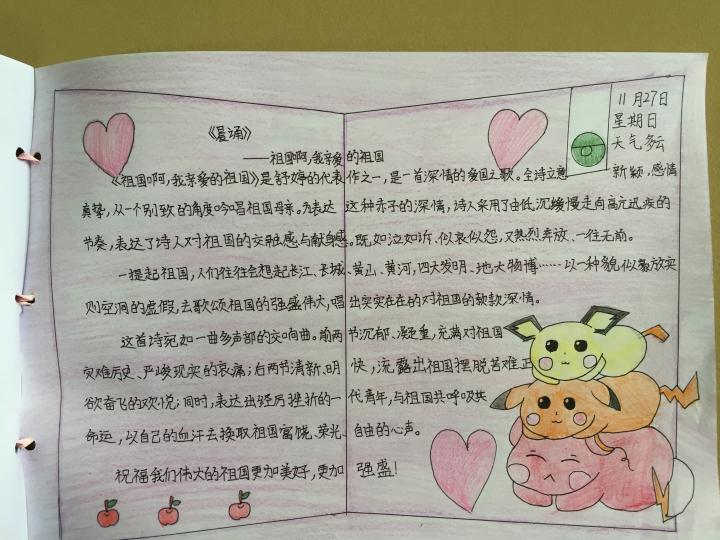 《晨诵》
——祖国啊,我亲爱的祖国
《祖国啊,我亲爱的祖国》是舒婷的代表作之一,是一首深情的爱国之歌。全诗立意新颖,感情
真挚,从一个别致的角度吟唱祖国母亲。为表达这种赤子的深情,诗人采用了由低沉缓慢走向高亢迅疾的
节奏,表达了诗人对祖国的交融感与献身感。既如泣如诉、似哀似怨,又热烈奔放、一往无前。
一提起祖国,人们往往会想起长江、长城、黄山、黄河,四大发明、地大物博……以一种貌似豪放实
则空洞的虚假,去歌颂祖国的强盛伟大,唱出实实在在的对祖国的款款深情。
这首诗宛如一曲多声部的交响曲。前两节沉郁、凝重,充满对祖国
灾难历史、严峻现实的哀痛;后两节清新、明快,流露出祖国摆脱苦难正
欲奋飞的欢悦;同时,表达出经历挫折的一代青年,与祖国共呼吸共
命运,以自己的血汗去换取祖国富饶、荣光、自由的心声。
祝福我们伟大的祖国更加美好,更加强盛!
11月27日
星期日
天气多云